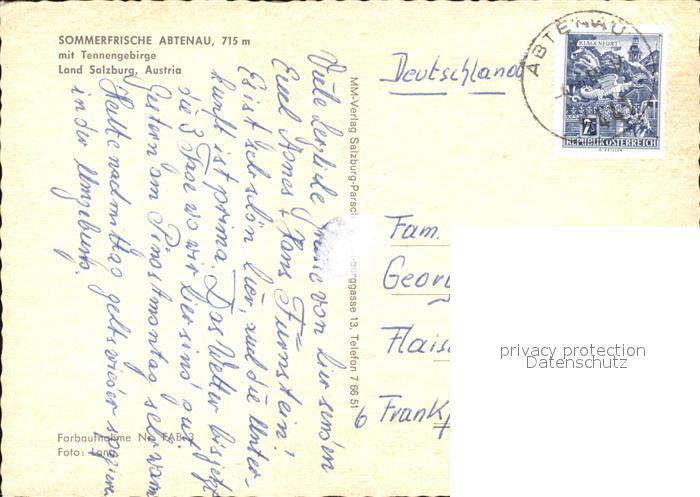 SOMMERFRISCHE ABTENAU, 715 m
mit Tennengebirge
Land Salzburg, Austria
Viele herzliche Grüße von hier senden
Euch Agnes + Hans Fürnstein!
Es ist sehr schön hier, und die Unter-
kunft ist prima. Das Wetter bis jetzt
die 3 Tage wo wir hier sind gut
Gestern am Pfingstmontag sehr warm
Heute nachmittag geht's wieder
in der Umgebung.
Farbaufnahme No. FAB 3
Foto: Lang
MM-Verlag Salzburg-Parsch
burggasse 13, Telefon 7 66 51
Deutschland
ABTENAU
KLAGENFURT
REPUBLIK ÖSTERREICH
Fam.
Georg
6
privacy protection
Datenschutz